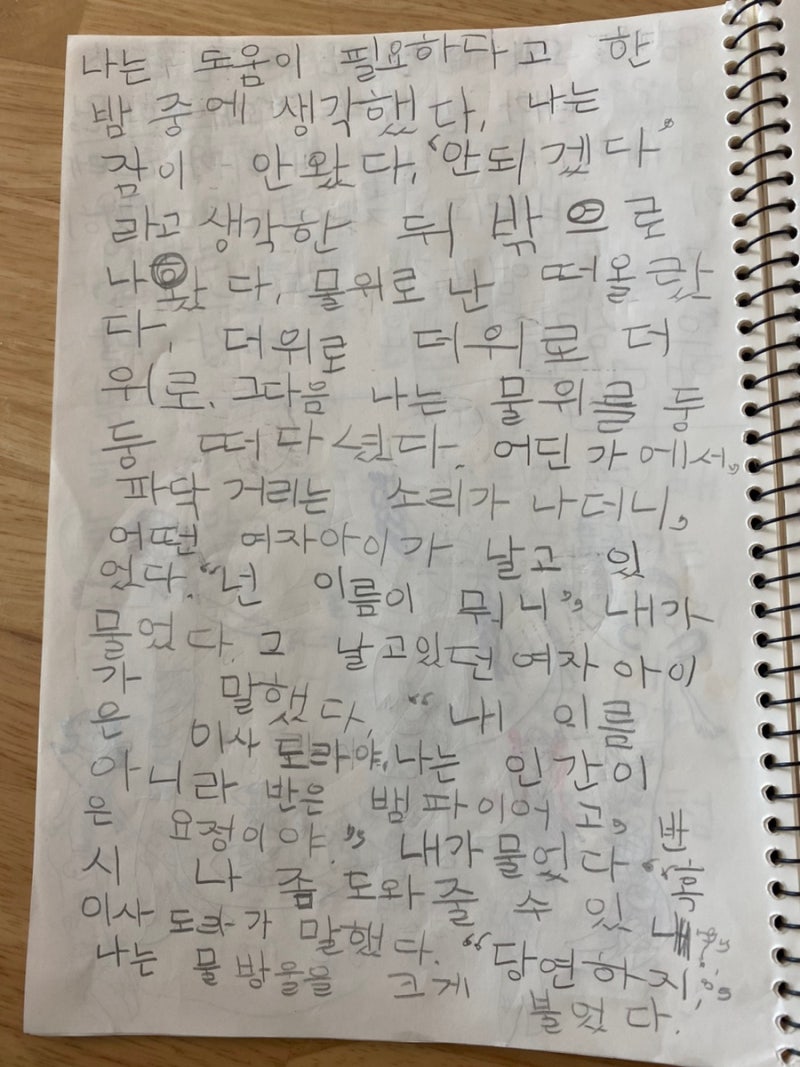 나는 도움이 필요하다고 한
밤 중에 생각했다, 나는
잠이 안왔다, “안되겠다”
라고 생각한 뒤 밖으로
나왔다, 물위로 난 떠올랐
다, 더위로 더위로 더
위로, 그다음 나는 물위를 둥
둥 떠다녔다. 어딘가에서,
파닥거리는 소리가 나더니,
어떤 여자아이가 날고 있
었다. “넌 이름이 뭐니” 내가
물었다. 그 날고있던 여자아이
가 말했다, “내 이름
은 이사도라야, 나는 인간이
아니라 반은 뱀파이어고, 반
은 요정이야.” 내가 물었다 “혹
시 나 좀 도와줄 수 있니?”
이사도라가 말했다. “당연하지,”
나는 물방울을 크게
불었다.